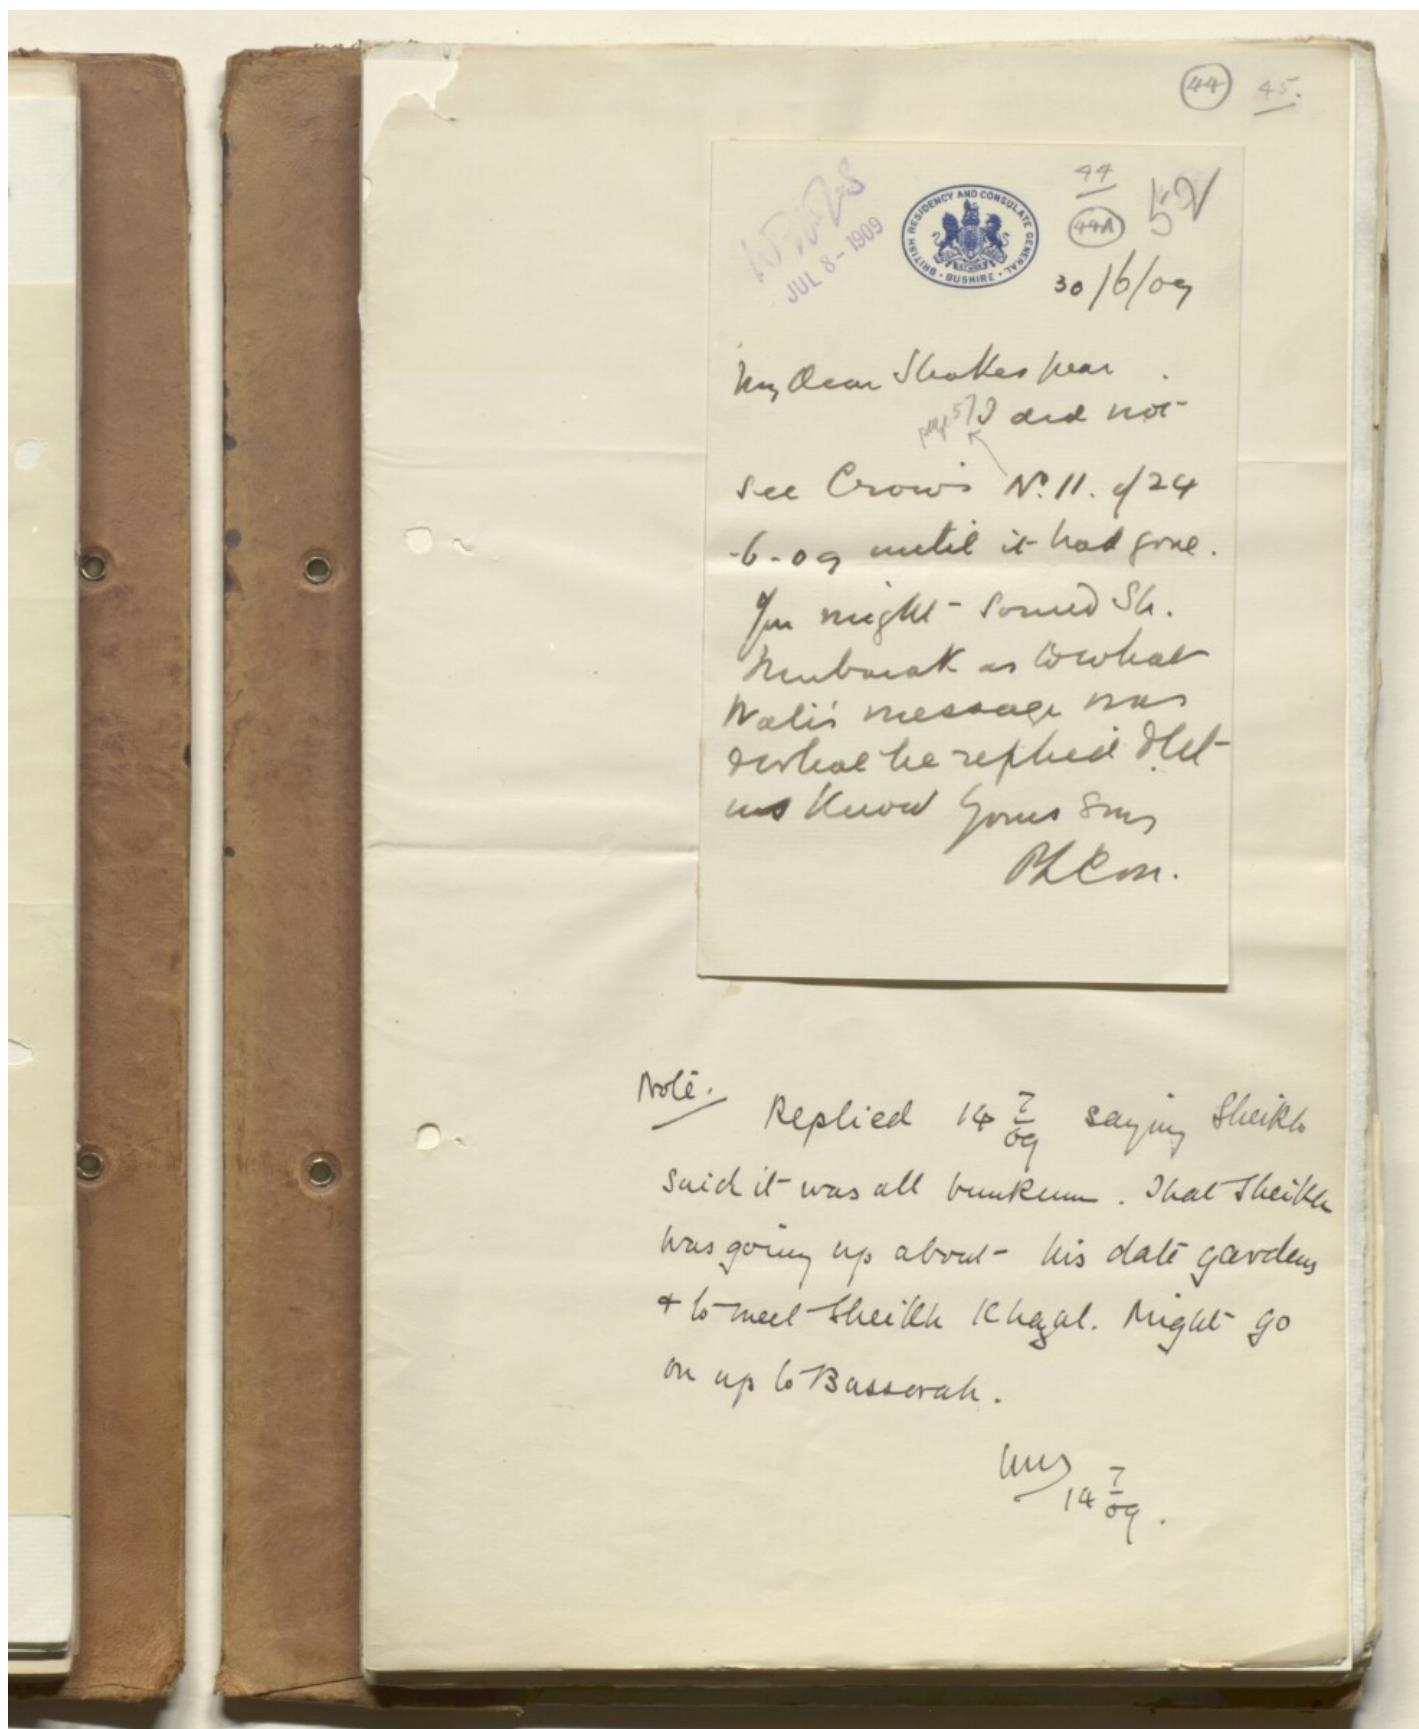 44 45.
44
44A 52
JUL 8 - 1909
BRITISH RESIDENCY AND CONSULATE GENERAL
· BUSHIRE ·
30/6/09
My Dear Shakespear
page 57 I did not
see Crow's No. 11. d/24
-6-09 until it had gone.
You might sound Sh.
Mubarak as to what
Wali's message was
& what he replied & let
me know Yours Sincy
PZCox.
Note. Replied 14 7/09 saying Sheikh
said it was all bunkum. That Sheikh
was going up about his date gardens
& to meet Sheikh Khazal. Might go
on up to Bassorah.
WHS
14 7/09.